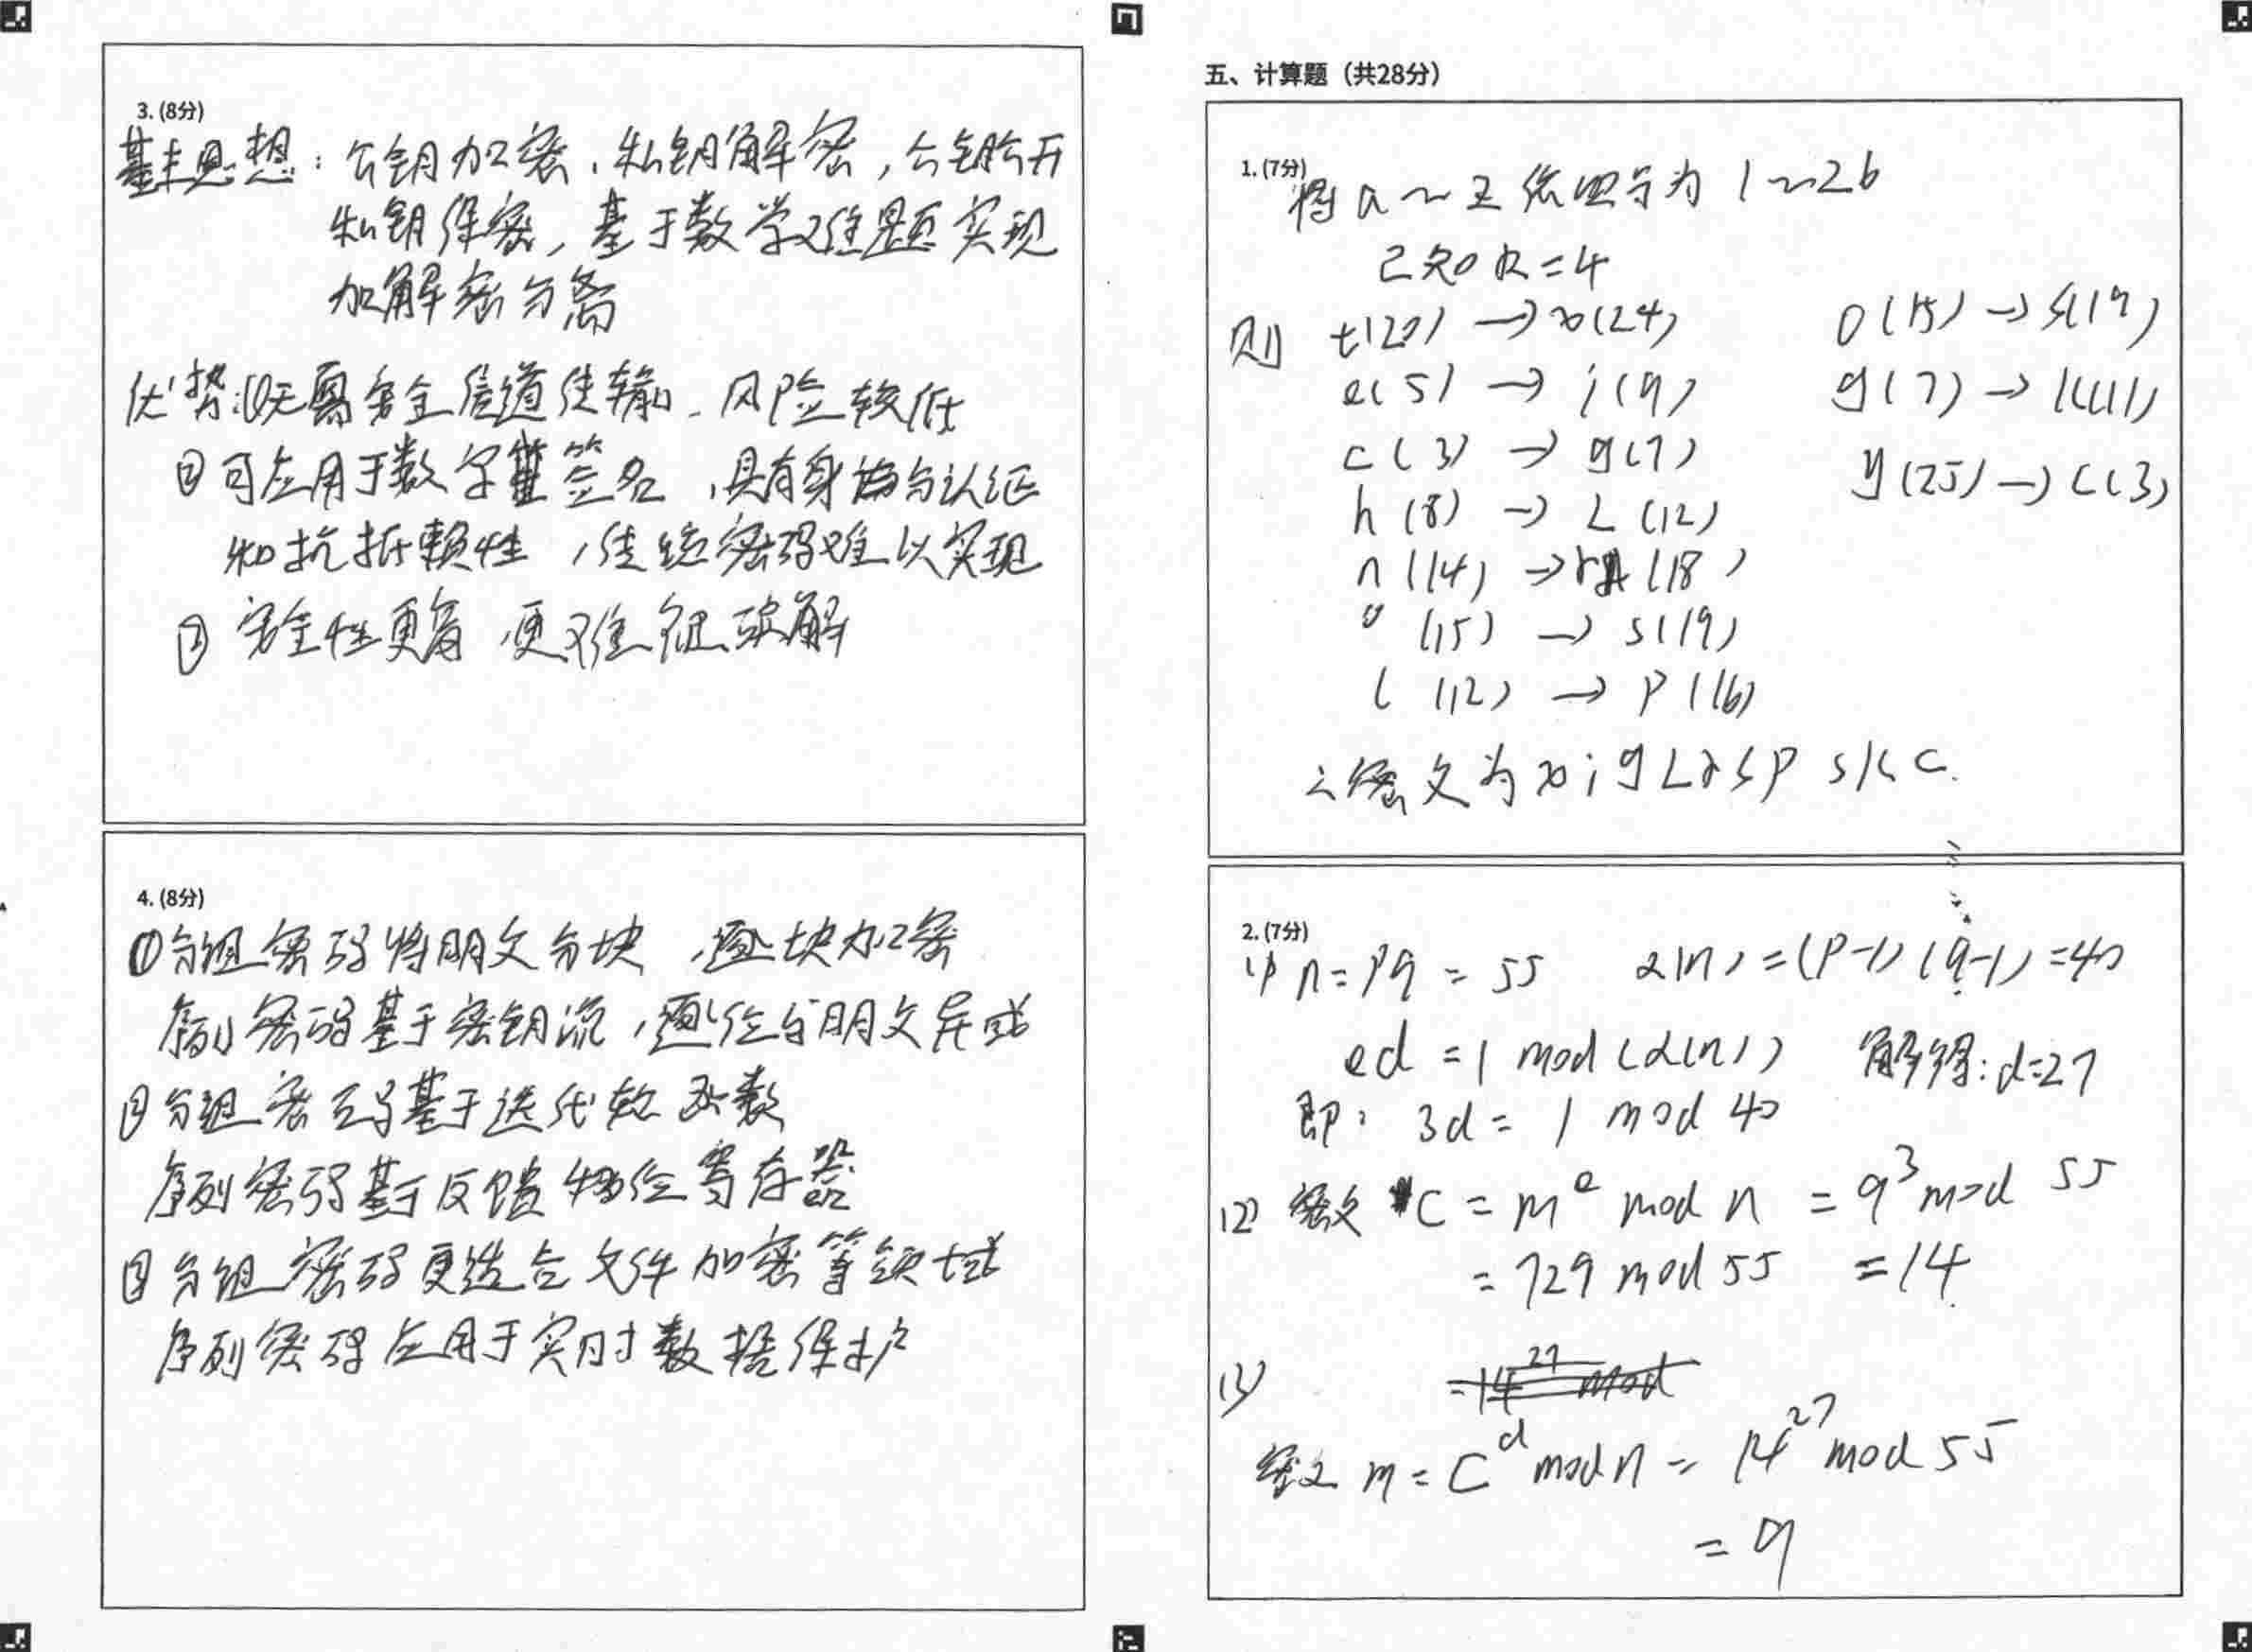 3. (8分)
基本思想：公钥加密，私钥解密，公钥公开
私钥保密，基于数学难题实现
加解密分离
优势：①无需安全信道传输，风险较低
②可应用于数字签名，具有身份认证
和抗抵赖性，传统密码难以实现
③安全性更高，更难被破解
4. (8分)
①分组密码将明文分块，逐块加密
序列密码基于密钥流，逐位与明文异或
②分组密码基于迭代轮函数
序列密码基于反馈移位寄存器
③分组密码更适合文件加密等领域
序列密码应用于实时数据保护
五、计算题（共28分）
1. (7分)
将a～z依次为1～26
已知k=4
则 t(20) → x(24) o(15) → s(19)
e(5) → i(9) g(7) → k(11)
c(3) → g(7) y(25) → c(3)
h(8) → L(12)
n(14) → r(18)
o(15) → s(19)
l(12) → p(16)
∴密文为xigLrsp skc.
2. (7分)
(1) n=pq=55 α(n)=(p-1)(q-1)=40
ed=1 mod(α(n)) 解得：d=27
即：3d=1 mod 40
(2) 密文 C=m^e mod n=9^3 mod 55
=729 mod 55 =14
(3) =14^27 mod
密文 m=C^d mod n=14^27 mod 55
=9